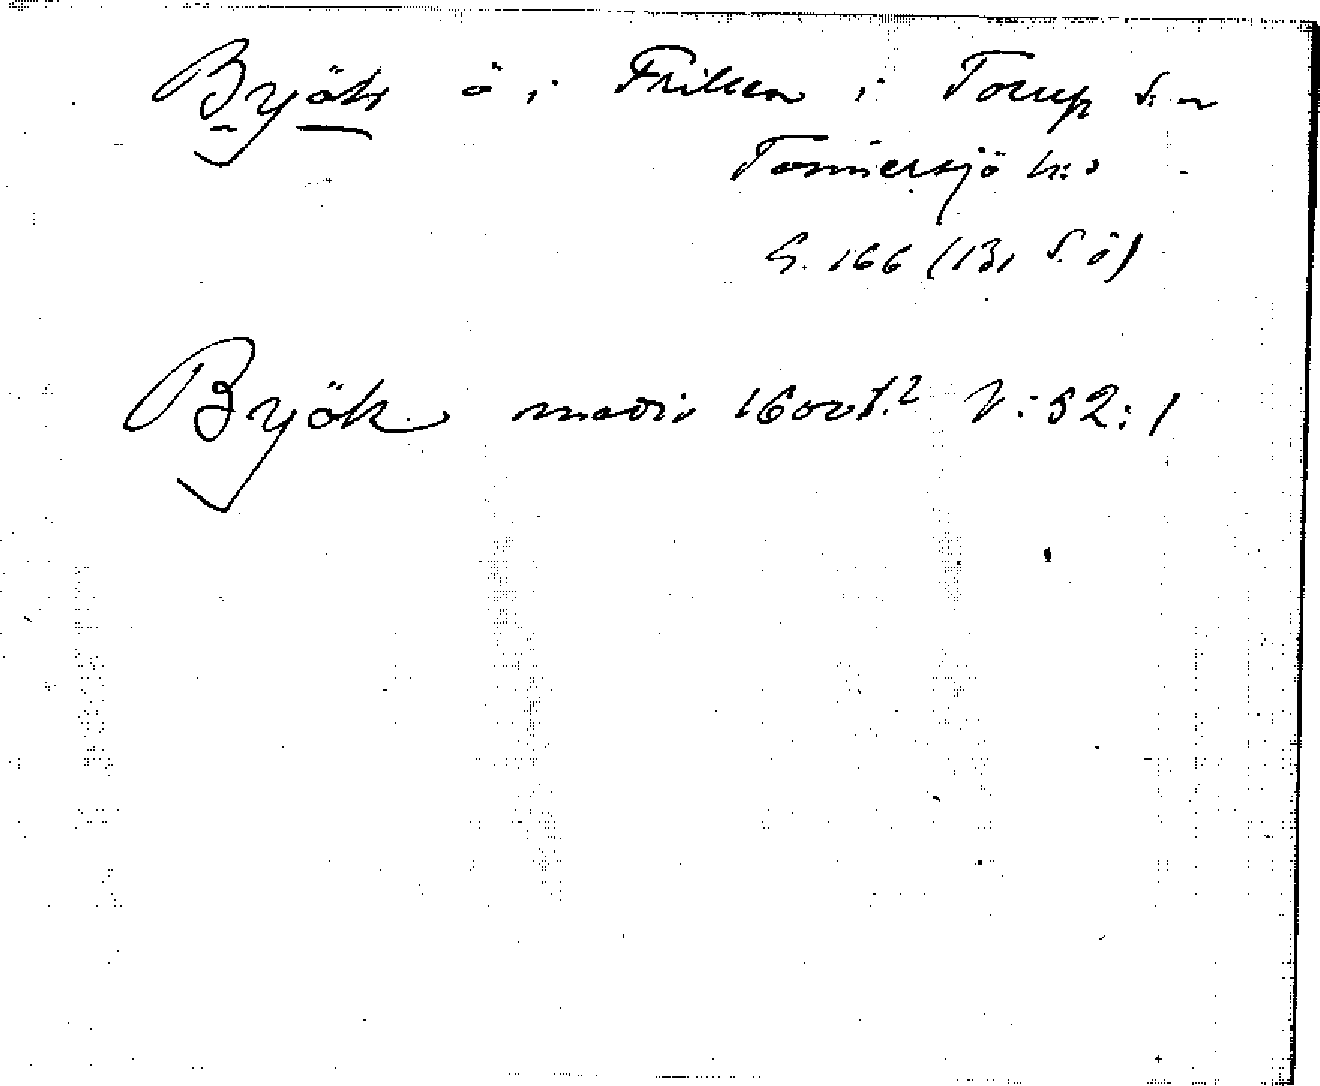 Byök ö i Frillen i Torup s:n
Tönnersjö h:d
G. 166 (131 S. ö)
Byök medio 1600t.² V:52:1